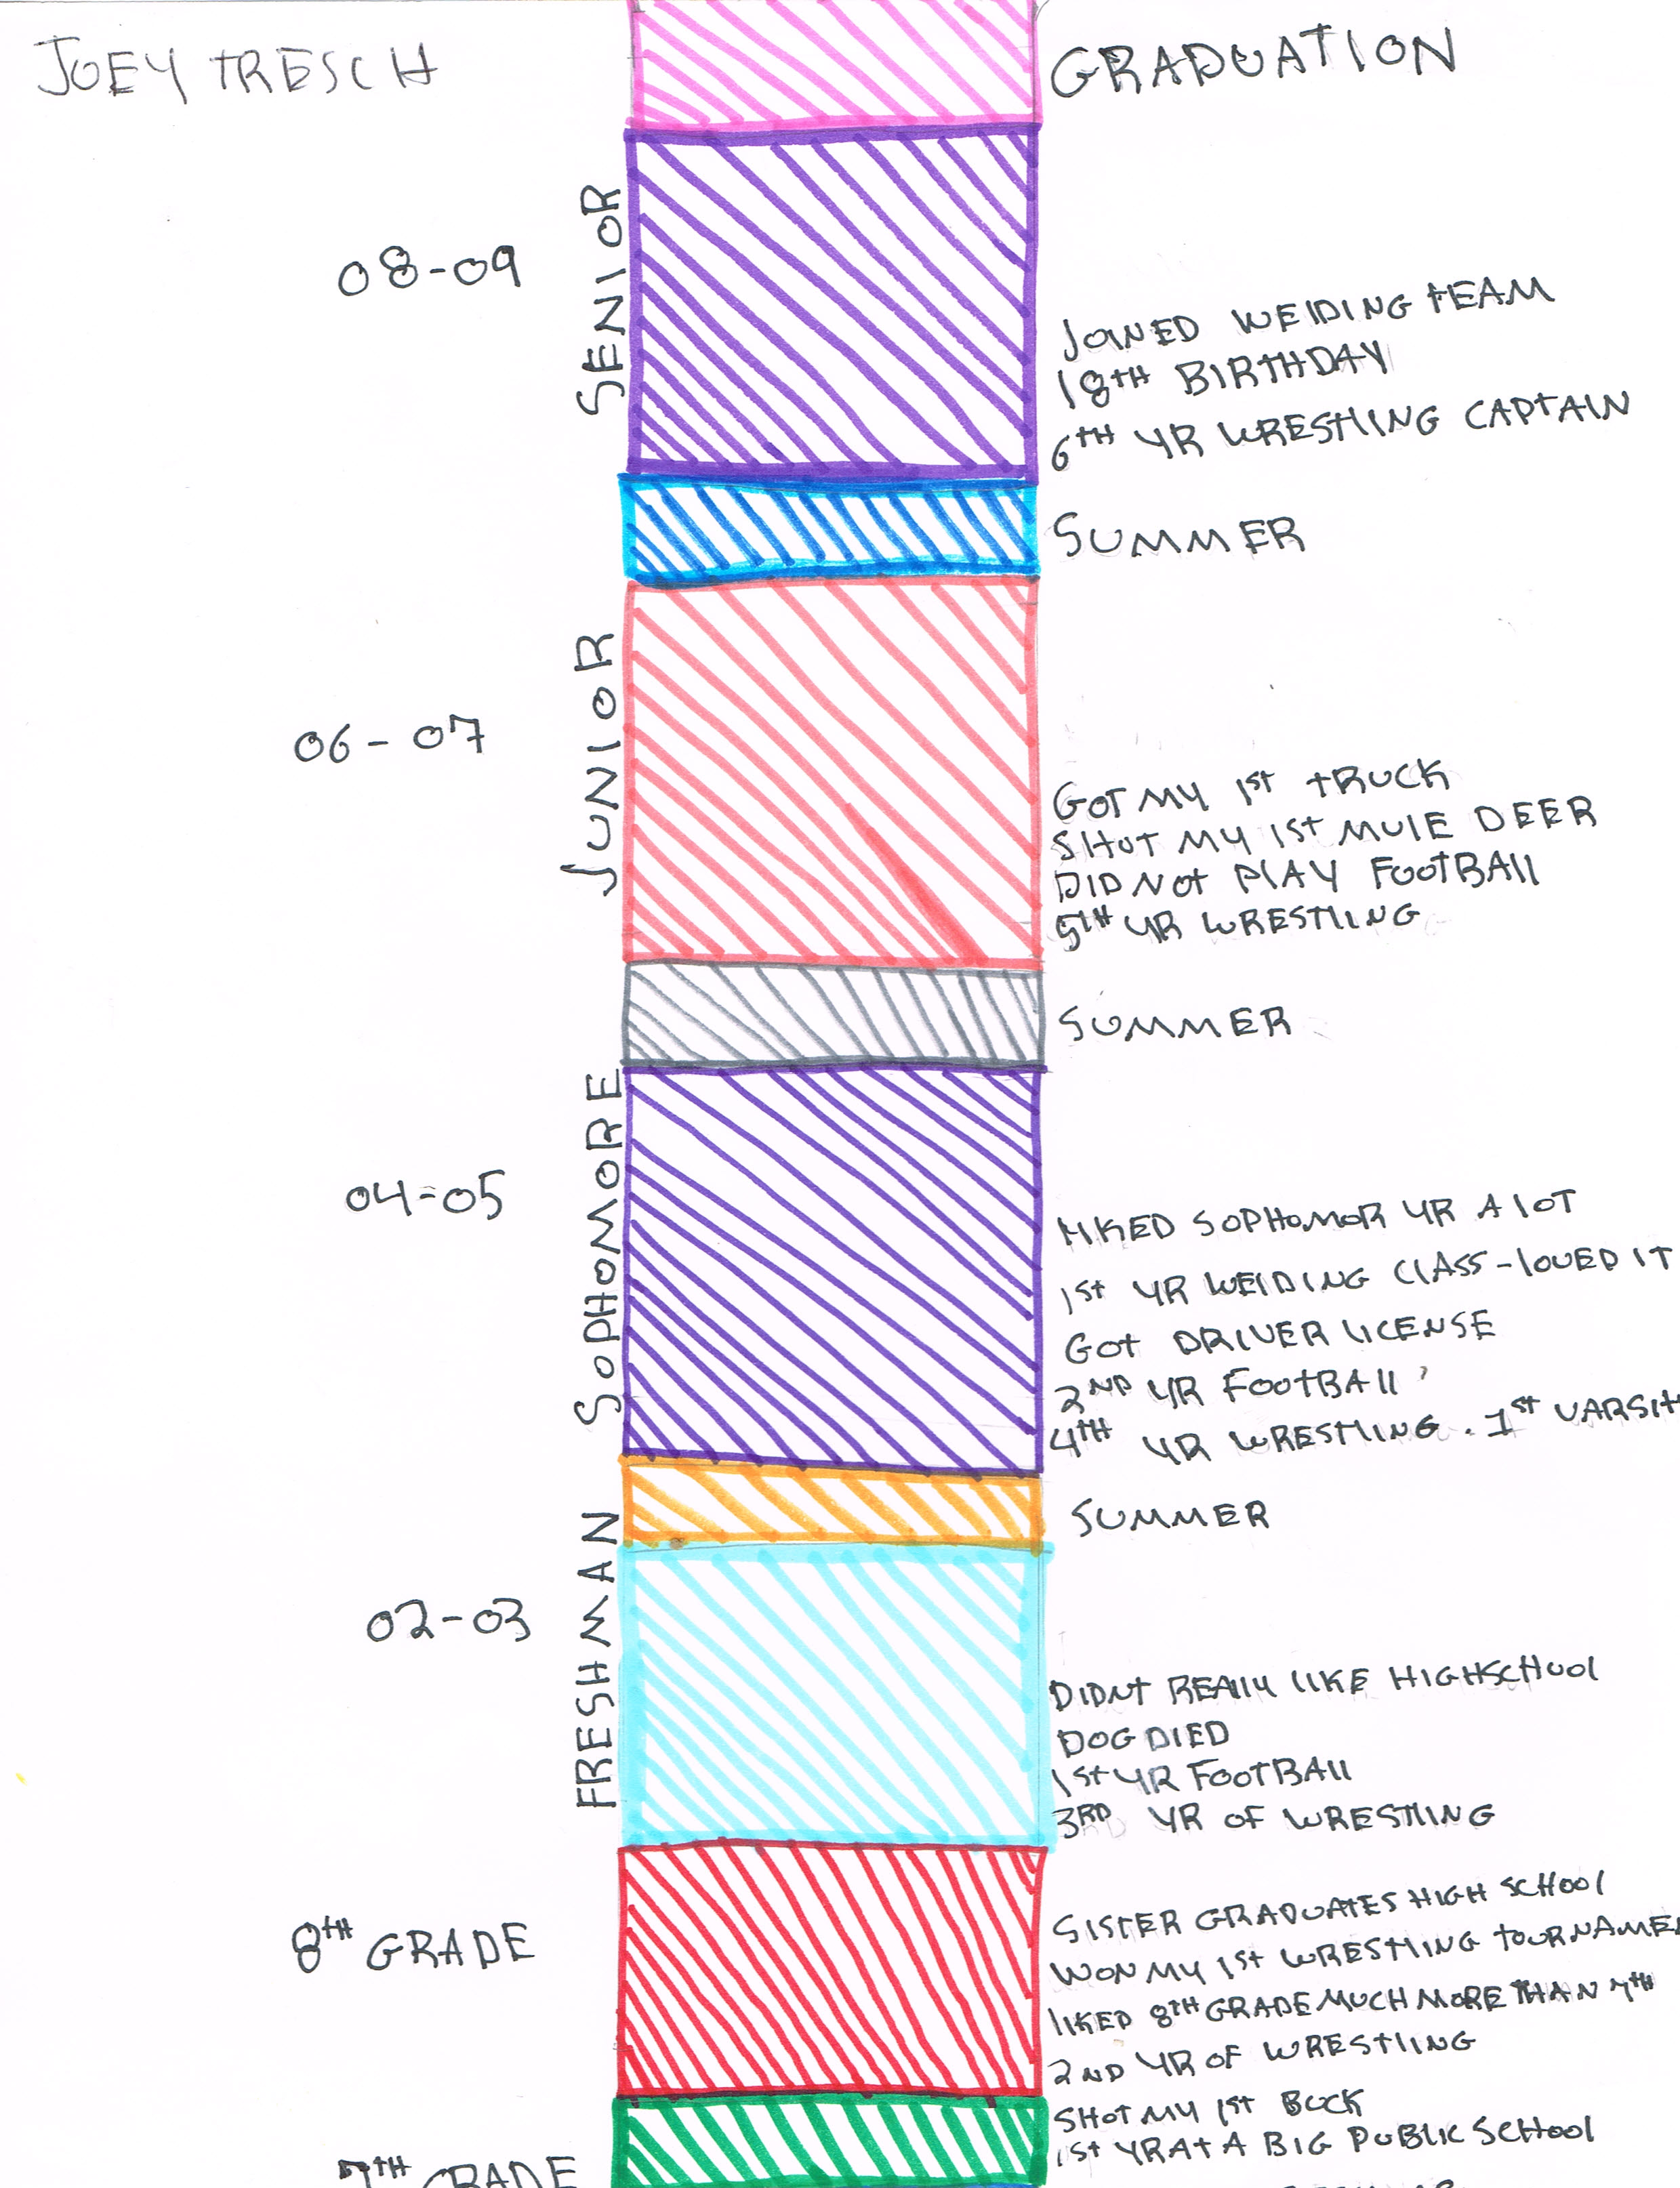 JOEY TRESCH
GRADUATION
SENIOR
08-09
JOINED WElDING tEAM
18tH BIRTHDAY
6tH YR WRESTlING CAPTAIN
SUMMER
JUNIOR
06-07
GOT MY 1st tRUCK
SHOT MY 1st MUlE DEER
DID NOt PlAY FOOtBAll
5tH YR WRESTlING
SUMMER
SOPHOMORE
04-05
lIKED SOPHOMOR YR A lOT
1st YR WElDING ClASS - lOVED IT
GOt DRIVER lICENSE
2ND YR FOOtBAll
4tH YR WRESTlING. 1st VARSIt
SUMMER
FRESHMAN
02-03
DIDNT REAllY lIKE HIGHSCHOOl
DOG DIED
1st YR FOOtBAll
3RD YR OF WRESTlING
8tH GRADE
SISTER GRADUATES HIGH SCHOOl
WON MY 1st WRESTlING tOURNAME
lIKED 8tH GRADE MUCH MORE THAN 7tH
2ND YR OF WRESTlING
7tH GRADE
SHOT MY 1st BUCK
1st YR At A BIG PUBLIC SCHOOl